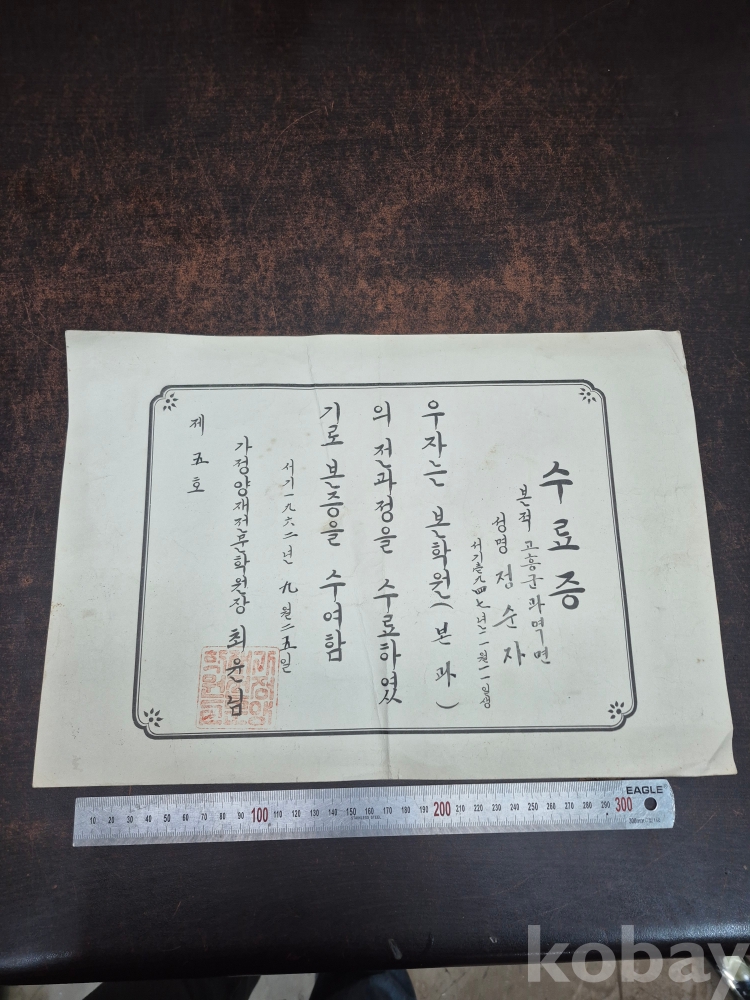 수료증
본적 고흥군 과역면
성명 정순자
서기 一九四七년 二월 一일생
우자는 본학원(본과)
의 전과정을 수료하였
기로 본증을 수여함
서기 一九六二년 九월 二五일
가정양재전문학원장 최윤님
제 五호
10 20 30 40 50 60 70 80 90 100 110 120 130 140 150 160 170 180 190 200 210 220 230 240 250 260 270 280 290 300
STAINLESS STEEL
EAGLE
kobay